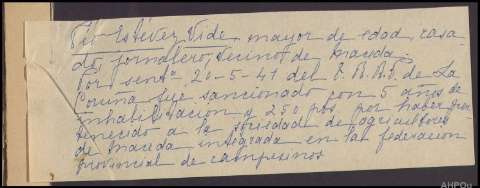 Pío Estévez Vide, mayor de edad, casa-
do, jornalero, vecino de Maceda.
Por sentª 20-5-41 del T.R.R.P. de La
Coruña fue sancionado con 5 años de
inhabilitacion y 250 pts. por haber per
tenecido a la sociedad de agricultores
de Maceda integrada en la federacion
provincial de campesinos
AHPOu